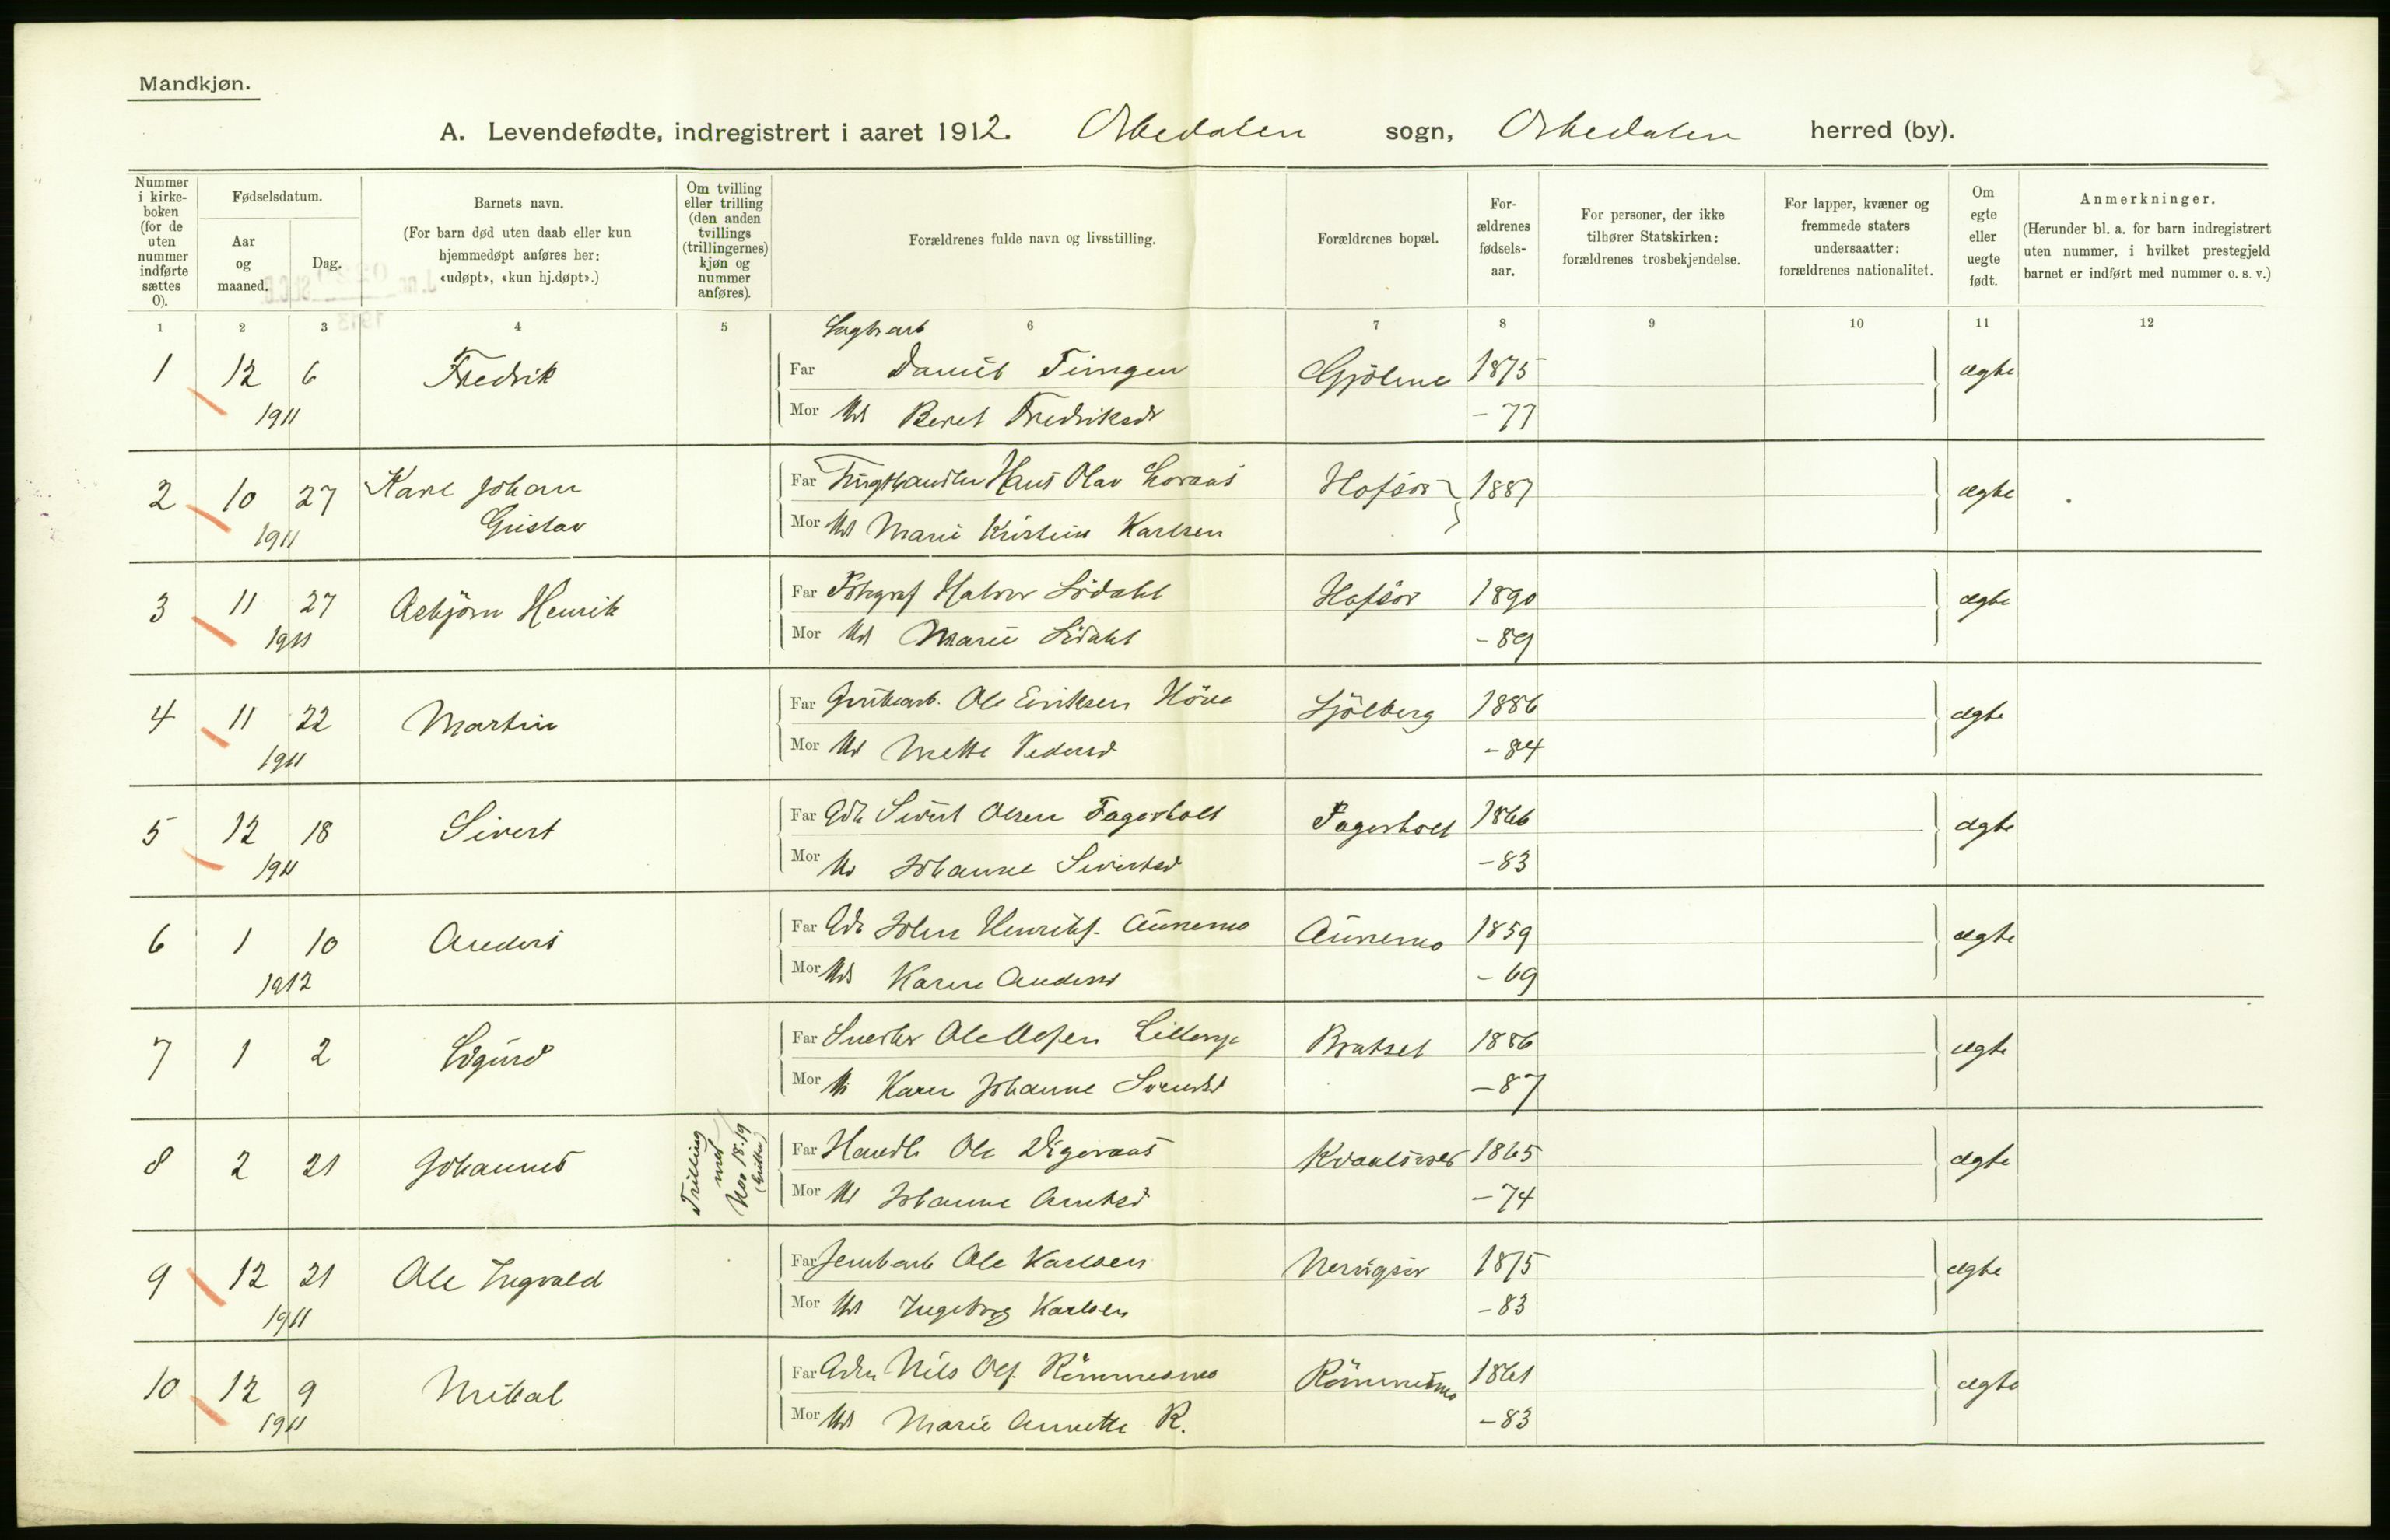 Mandkjøn.
A. Levendefødte, indregistrert i aaret 1912. Orkedalen sogn, Orkedalen herred (by).
Nummer i kirke-boken (for de uten nummer indførte sættes 0).
Fødselsdatum.
Aar og maaned.
Dag.
Barnets navn.
(For barn død uten daab eller kun hjemmedøpt anføres her: «udøpt», «kun hj.døpt».)
Om tvilling eller trilling (den anden tvillings (trillingernes) kjøn og nummer anføres).
Forældrenes fulde navn og livsstilling.
Forældrenes bopæl.
For-ældrenes fødsels-aar.
For personer, der ikke tilhører Statskirken: forældrenes trosbekjendelse.
For lapper, kvæner og fremmede staters undersaatter: forældrenes nationalitet.
Om egte eller uegte født.
Anmerkninger.
(Herunder bl. a. for barn indregistrert uten nummer, i hvilket prestegjeld barnet er indført med nummer o. s. v.)
1 2 3 4 5 6 7 8 9 10 11 12
Sagbarb
1 12 6 Fredrik Far Daniel Gjölme 1875 ægte
1911 Mor Beret Fredriksdr - 77
2 10 27 Karl Johan Far Hans Olav Hofsör 1887 ægte
1911 Gustav Mor Marie Kristine Karlsen
3 11 27 Asbjörn Henrik Far Halvor Lidahl Hofsör 1890 ægte
1911 Mor Marie Lidahl - 89
4 11 22 Martin Far Ole Eriksen Sjölberg 1886 ægte
1911 Mor Mette Pedersd - 84
5 12 18 Sivert Far Gdb Sivert Olsen Fagerholt Fagerholt 1866 ægte
1911 Mor Johanne Sivertsd - 83
6 1 10 Anders Far Gdb John Henriks. Aunemo Aunemo 1859 ægte
1912 Mor Karen Andersd - 69
7 1 2 Sigurd Far Snedker Ole Bratset 1886 ægte
Mor Karen Johanne Svendsd - 87
8 2 21 Johannes Trilling med No 18.19 Far Handlb Ole Digeraas 1865 ægte
Mor Johanne Arntsd - 74
9 12 21 Ole Ingvald Far Jernbarb Ole Karlsen 1875 ægte
1911 Mor Ingeborg Karlsen - 83
10 12 9 Mikal Far Nils Ols. Römmesmo Römmesmo 1861 ægte
1911 Mor Marie Annette R. - 83